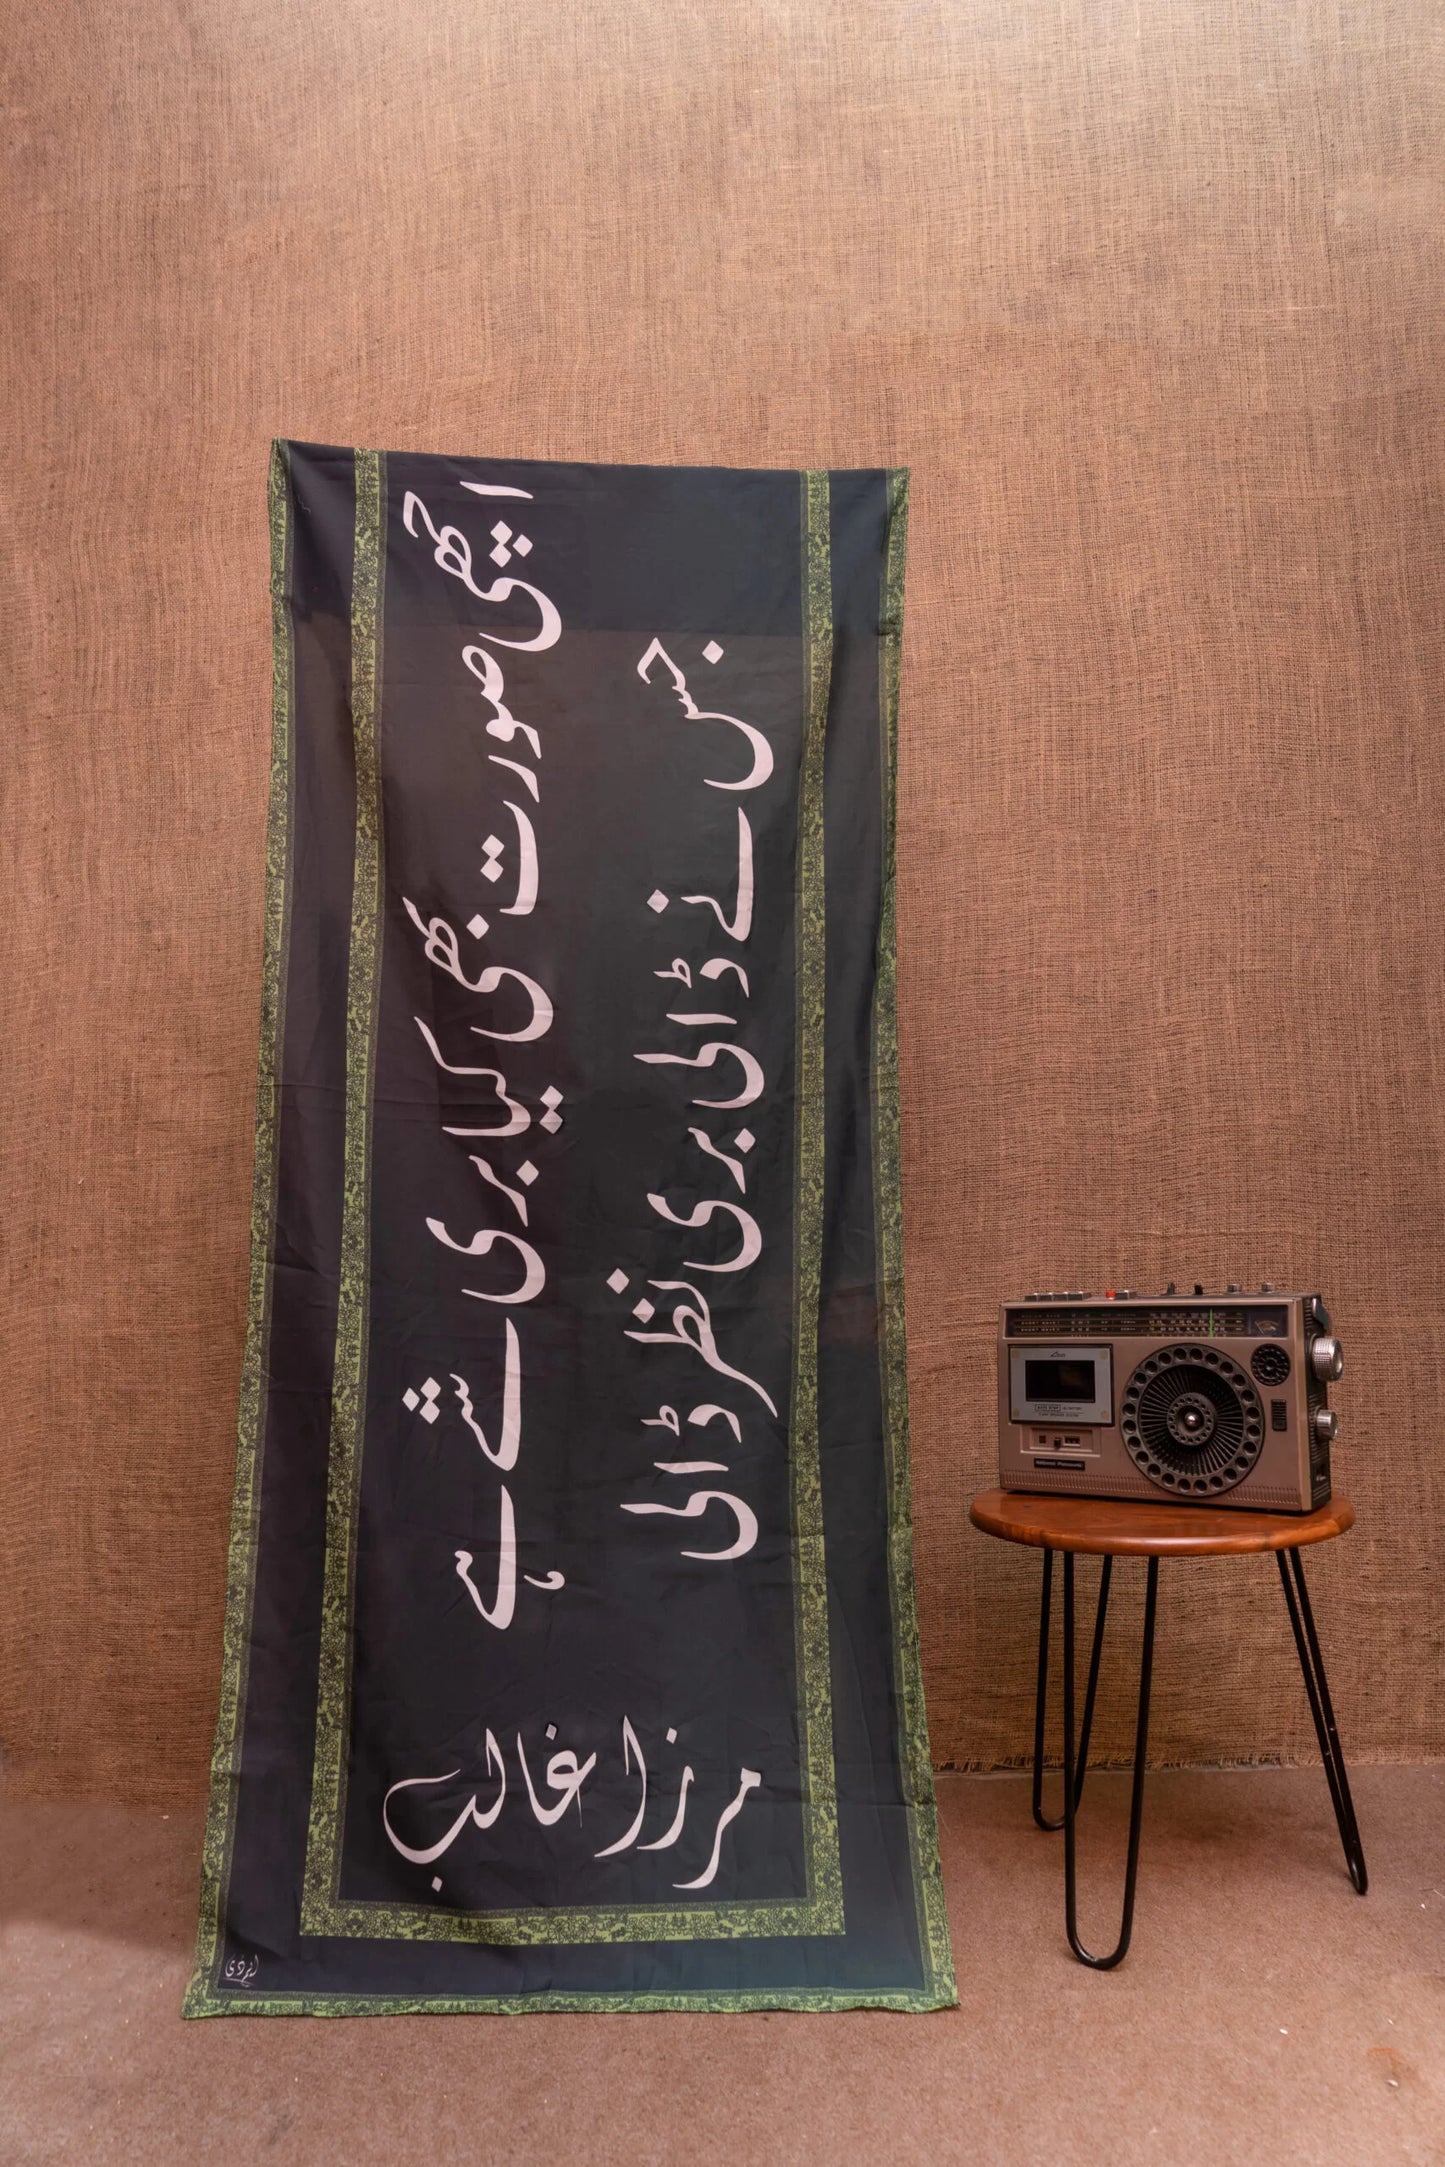 اچھی صورت بھی کیا بری شے ہے
جس نے ڈالی بری نظر ڈالی
مرزا غالب
National Panasonic